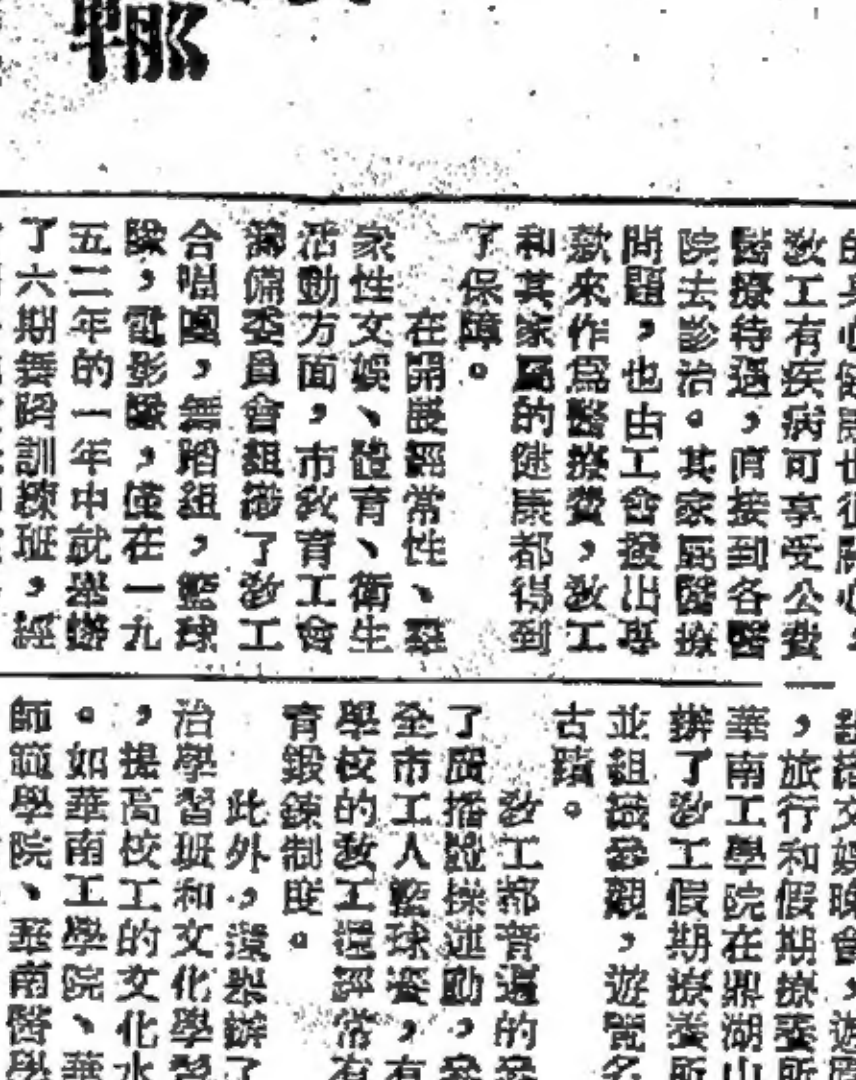 敎工有疾病可享受公費
醫療待遇，直接到各醫
院去診治。其家屬醫療
問題，也由工會撥出專
欵來作爲醫療費，敎工
和其家屬的健康都得到
了保障。
在開展經常性、羣
衆性文娛、體育、衛生
活動方面，市敎育工會
籌備委員會組織了敎工
合唱團，舞蹈組，籃球
隊，電影隊，僅在一九
五二年的一年中就舉辦
了六期舞蹈訓練班，經
，旅行和假期療養所
華南工學院在鼎湖山
辦了敎工假期療養所
並組織參觀，遊覽名
古蹟。
敎工都普遍的參
了廣播體操運動，參
全市工人籃球賽，有
學校的敎工還經常有
育鍛鍊制度。
此外，還舉辦了
治學習班和文化學習
，提高校工的文化水
。如華南工學院、華
師範學院、華南醫學